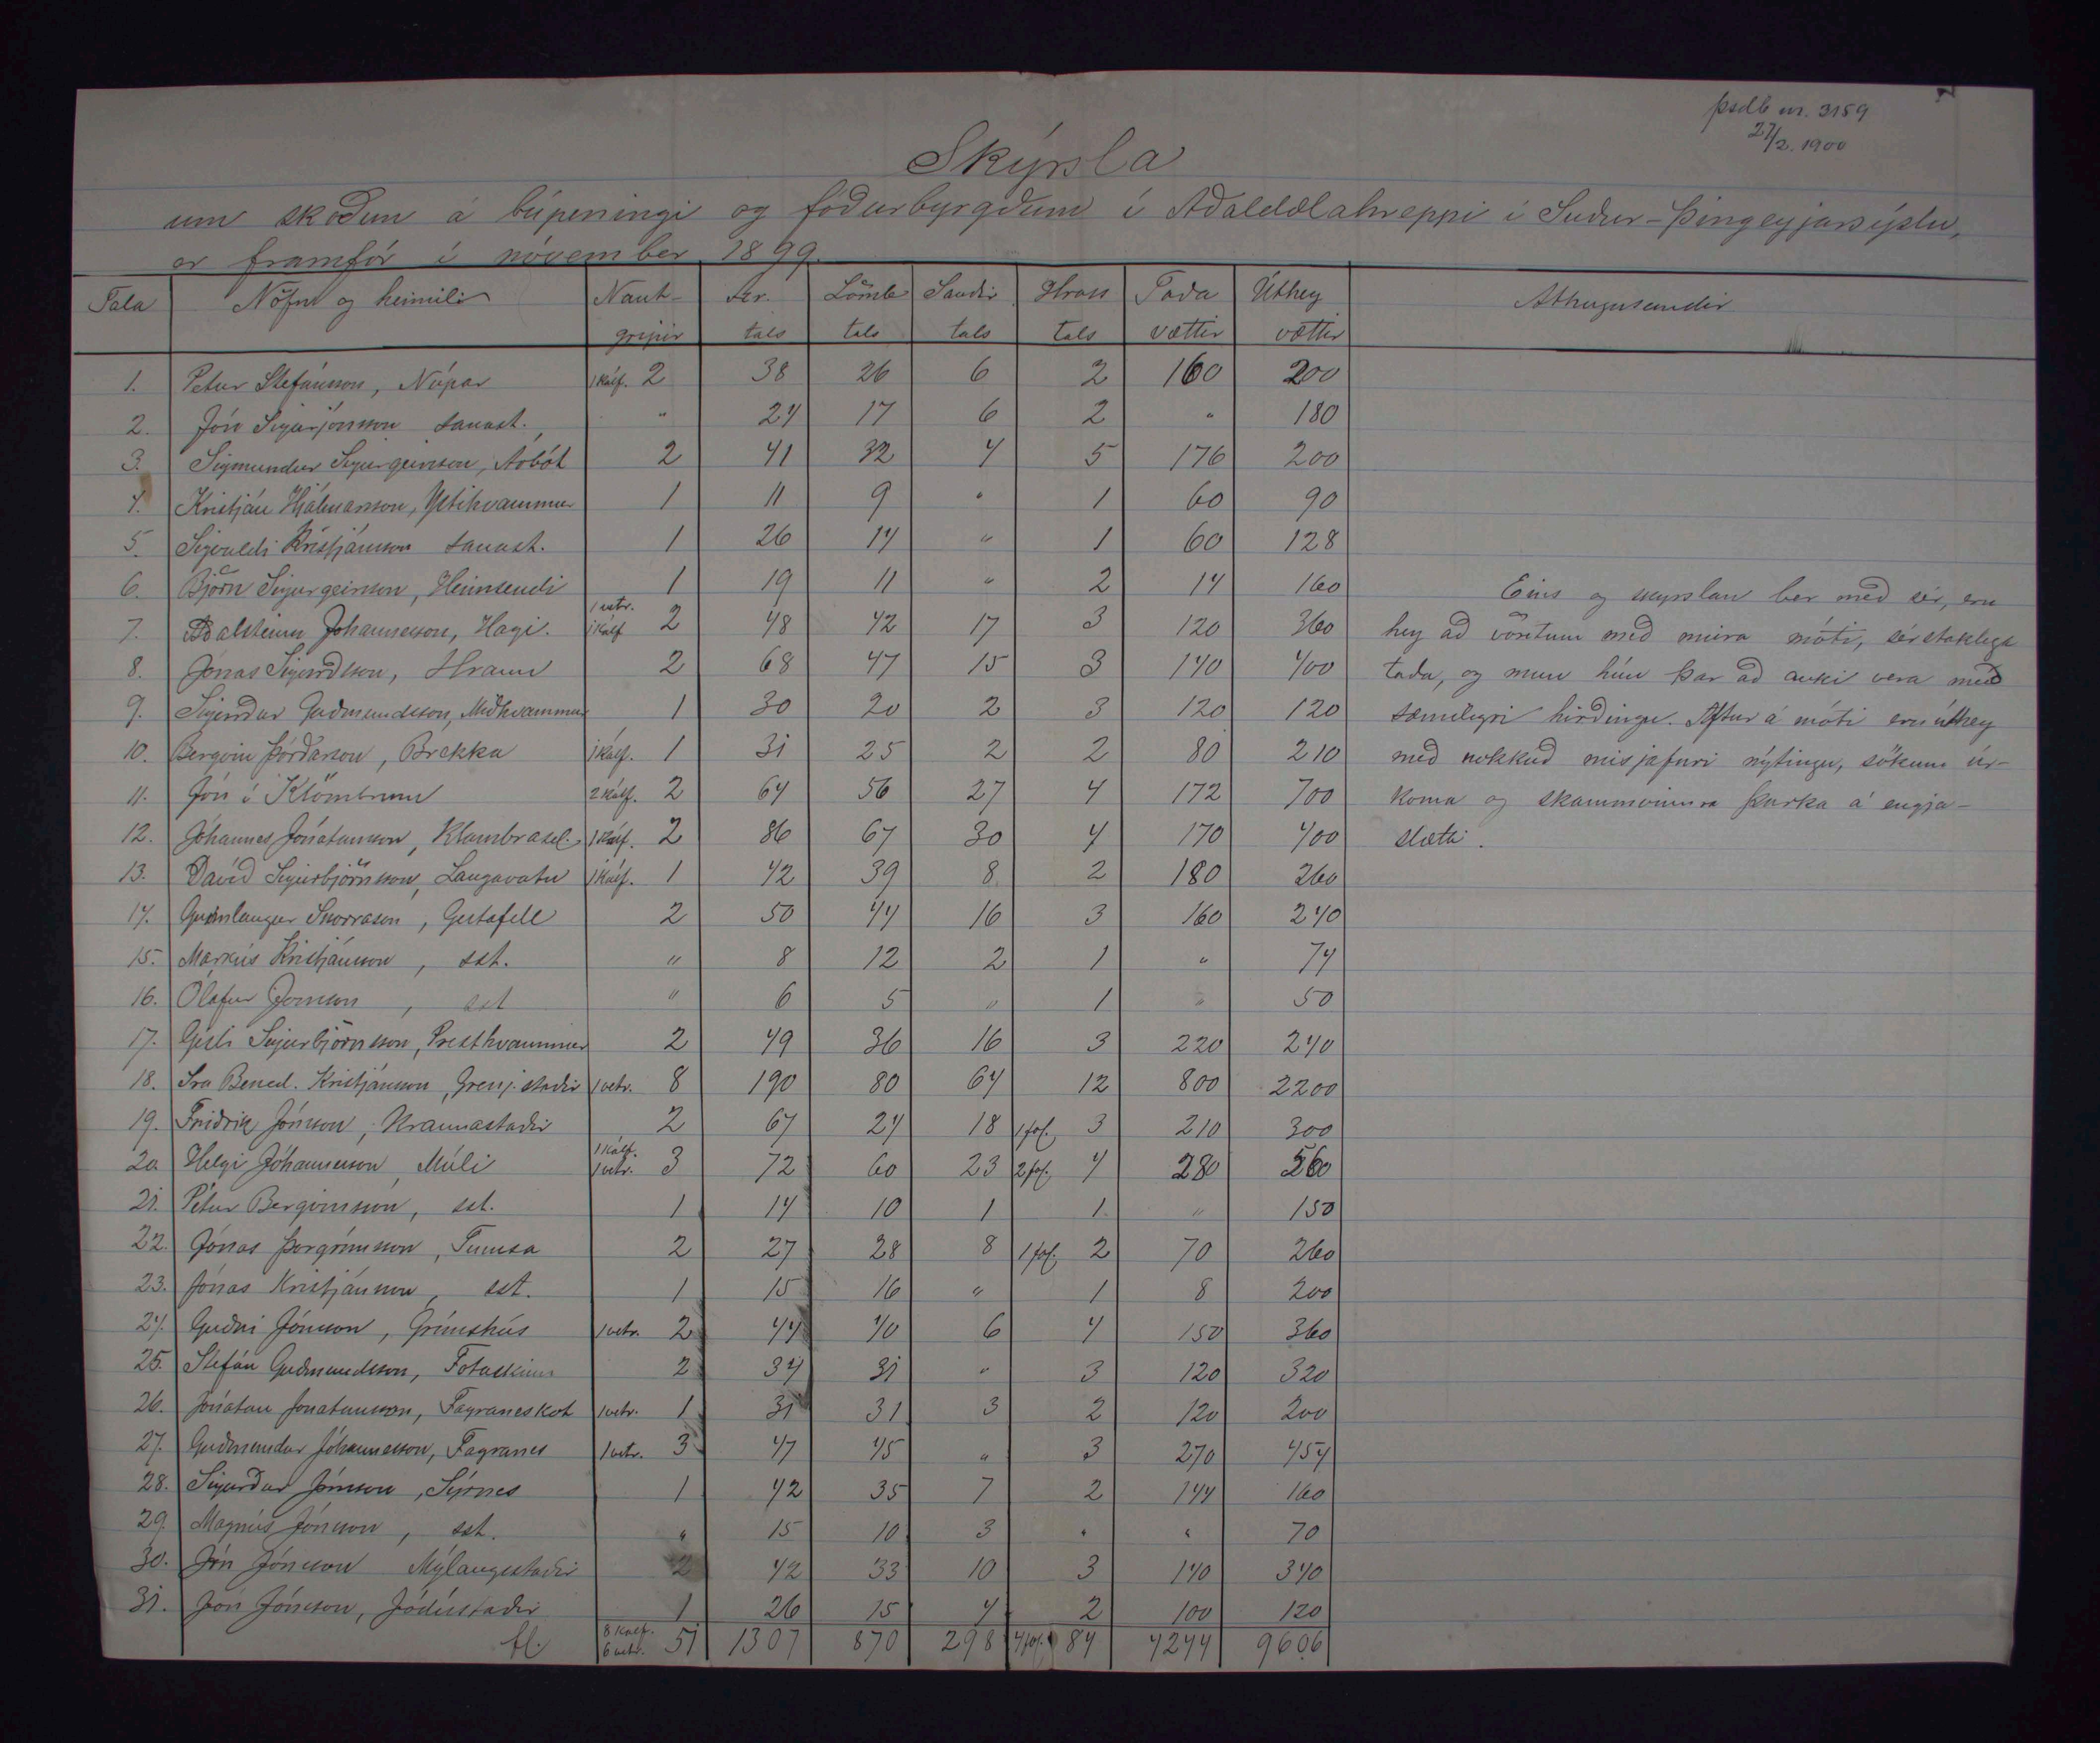 þsdb nr. 3159
27/2. 1900
Skýrsla
um skoðun á búpeningi og fóðurbyrgðum í Aðaldælahreppi í Suður-Þingeyjarsýslu,
er framfór í nóvember 1899.
Tala Nöfn og heimili Naut- Ær. Lömb Sauðir Hross Taða Úthey Athugasemdir
gripir tals tals tals tals vættir vættir
1. Petur Stefánsson, Núpar 1 kálf. 2 38 26 6 2 160 200
2. Jón Sigurjónsson samast. " 24 17 6 2 " 180
3. Sigmundur Sigurgeirsson, Árbót 2 41 32 4 5 176 200
4. Kristján Hjálmarsson, Ytrihvammur 1 11 9 " 1 60 90
5. Sigvaldi Kristjánsson samast. 1 26 14 " 1 60 128
6. Björn Sigurgeirsson, Heimsendi 1 19 11 " 2 14 160 Eins og skyrslan ber með sér, eru
7. Aðalsteinn Johannesson, Hagi. 1 vetr. 1 kálf 2 48 42 17 3 120 360 hey að vöxtum með minra móti, sérstaklega
8. Jónas Sigurdsson, Hraun 2 68 47 15 3 140 400 taða, og mun hún þar að auki vera með
9. Sigurdur Guðmundsson, Miðhvammur 1 30 20 2 3 120 120 sæmilegri hirðingu. Aftur á móti eru úthey
10. Bergvin Þórðarson, Brekka 1 kálf. 1 31 25 2 2 80 210 með nokkuð misjafnri nýtingu, sökum úr-
11. Jón í Klömbrum 2 kálf. 2 64 56 27 4 172 700 koma og skammvinnra þurka á engja-
12. Jóhannes Jónatansson, Klambrasel. 1 kálf. 2 86 67 30 4 170 400 slætti.
13. Davíð Sigurbjörnsson, Langavatn 1 kálf. 1 42 39 8 2 180 260
14. Gunnlaugur Snorrason, Geitafell 2 50 44 16 3 160 240
15. Markús Kristjánsson, sst. " 8 12 2 1 " 74
16. Ólafur Jonsson, sst " 6 5 " 1 " 50
17. Gísli Sigurbjörnsson, Presthvammur 2 49 36 16 3 220 240
18. Sra Bened. Kristjánsson, Grenj.staðir 1 vetr. 8 190 80 64 12 800 2200
19. Friðrik Jónsson, Kraunastaðir 2 67 24 18 1 fol. 3 210 300
20 Helgi Jóhannesson, Múli 1 kálf. 1 vetr. 3 72 60 23 2 fol. 4 280 560
21. Pétur Bergvinsson, sst. 1 14 10 1 1 " 150
22. Jónas Þorgrímsson, Tumsa 2 27 28 8 1 fol. 2 70 260
23. Jónas Kristjánsson, sst. 1 15 16 " 1 8 200
24. Guðni Jónsson, Grímshús 1 vetr. 2 44 40 6 4 150 360
25. Stefán Guðmundsson, Fotaskinn 2 34 31 " 3 120 320
26. Jónatan Jonatansson, Fagraneskot 1 vetr. 1 31 31 3 2 120 200
27. Guðmundur Jóhannesson, Fagranes 1 vetr. 3 47 45 " 3 270 454
28. Sigurður Jónsson, Sýrnes 1 42 35 7 2 144 160
29. Magnús Jónsson, sst. " 15 10 3 " " 70
30. Jón Jónsson Mýlaugsstaðir 2 42 33 10 3 140 340
31. Jón Jónsson, Jódísstaðir 1 26 15 4 2 100 120
fl. 8 kálf. 6 vetr. 51 1307 870 298 4 fol. 84 4244 9606